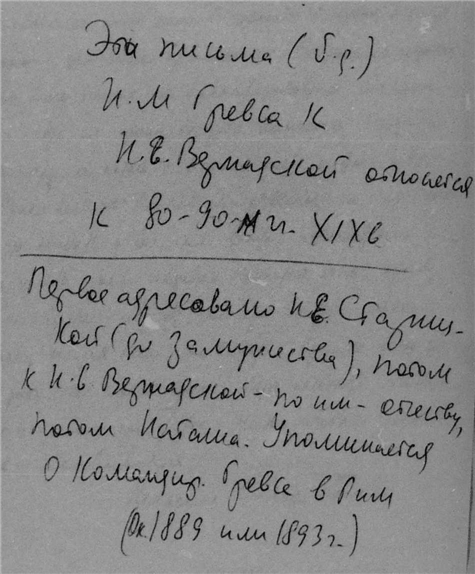 Эти письма (б.д.)
И.М Гревса к
Н.Е. Вернадской относятся
к 80-90-м гг. XIX в
Первое адресовано Н.Е. Стариц-
кой (до замужества), потом
к Н.Е Вернадской - по им-отчеству,
потом Наташа. Упоминается
о командир. Гревса в Рим
(Ок. 1889 или 1893 г.)